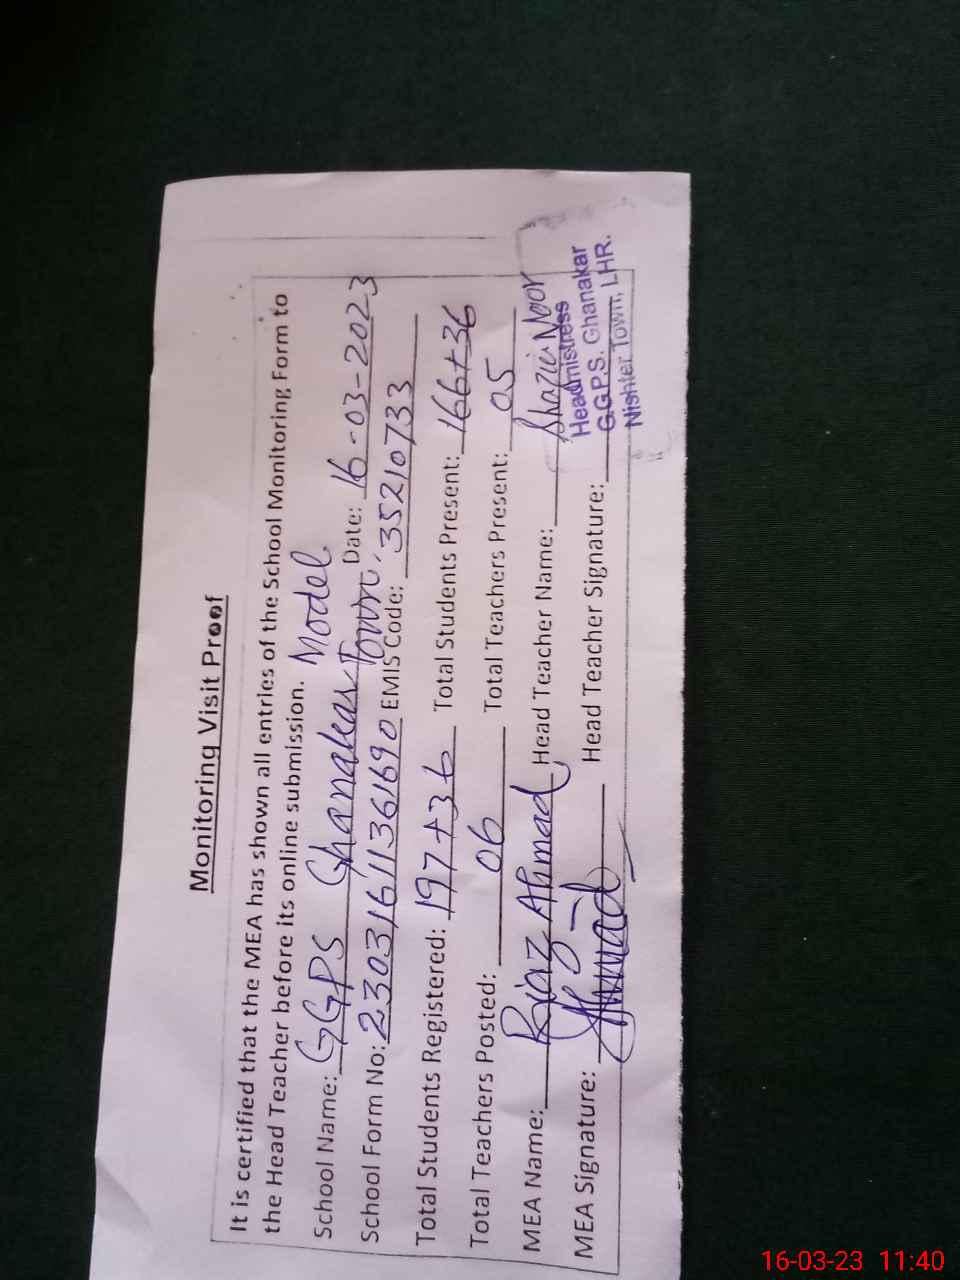 Monitoring Visit Proof
It is certified that the MEA has shown all entries of the School Monitoring Form to
the Head Teacher before its online submission.
School Name: GGPS Ghanakar Town, Model Date: 16-03-2023
School Form No: 23031611361690 EMIS Code: 35210733
Total Students Registered: 197+36 Total Students Present: 166+36
Total Teachers Posted: 06 Total Teachers Present: 05
MEA Name: Riaz Ahmad Head Teacher Name: Shazia Noor
MEA Signature: Head Teacher Signature:
Headmistress
G.G.P.S. Ghanakar
Nishter Town, LHR.
16-03-23 11:40